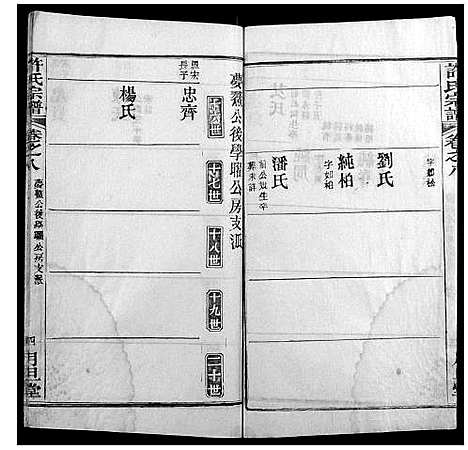 許氏宗譜
卷之八
字如松
劉氏
純柏
字如柏
潘氏
夢鰲公後學聯公房支派
十六世
十七世
十八世
十九世
二十世
長子
忠齊
楊氏
許氏宗譜
卷之八
夢鰲公後學聯公房支派
四
月旦堂